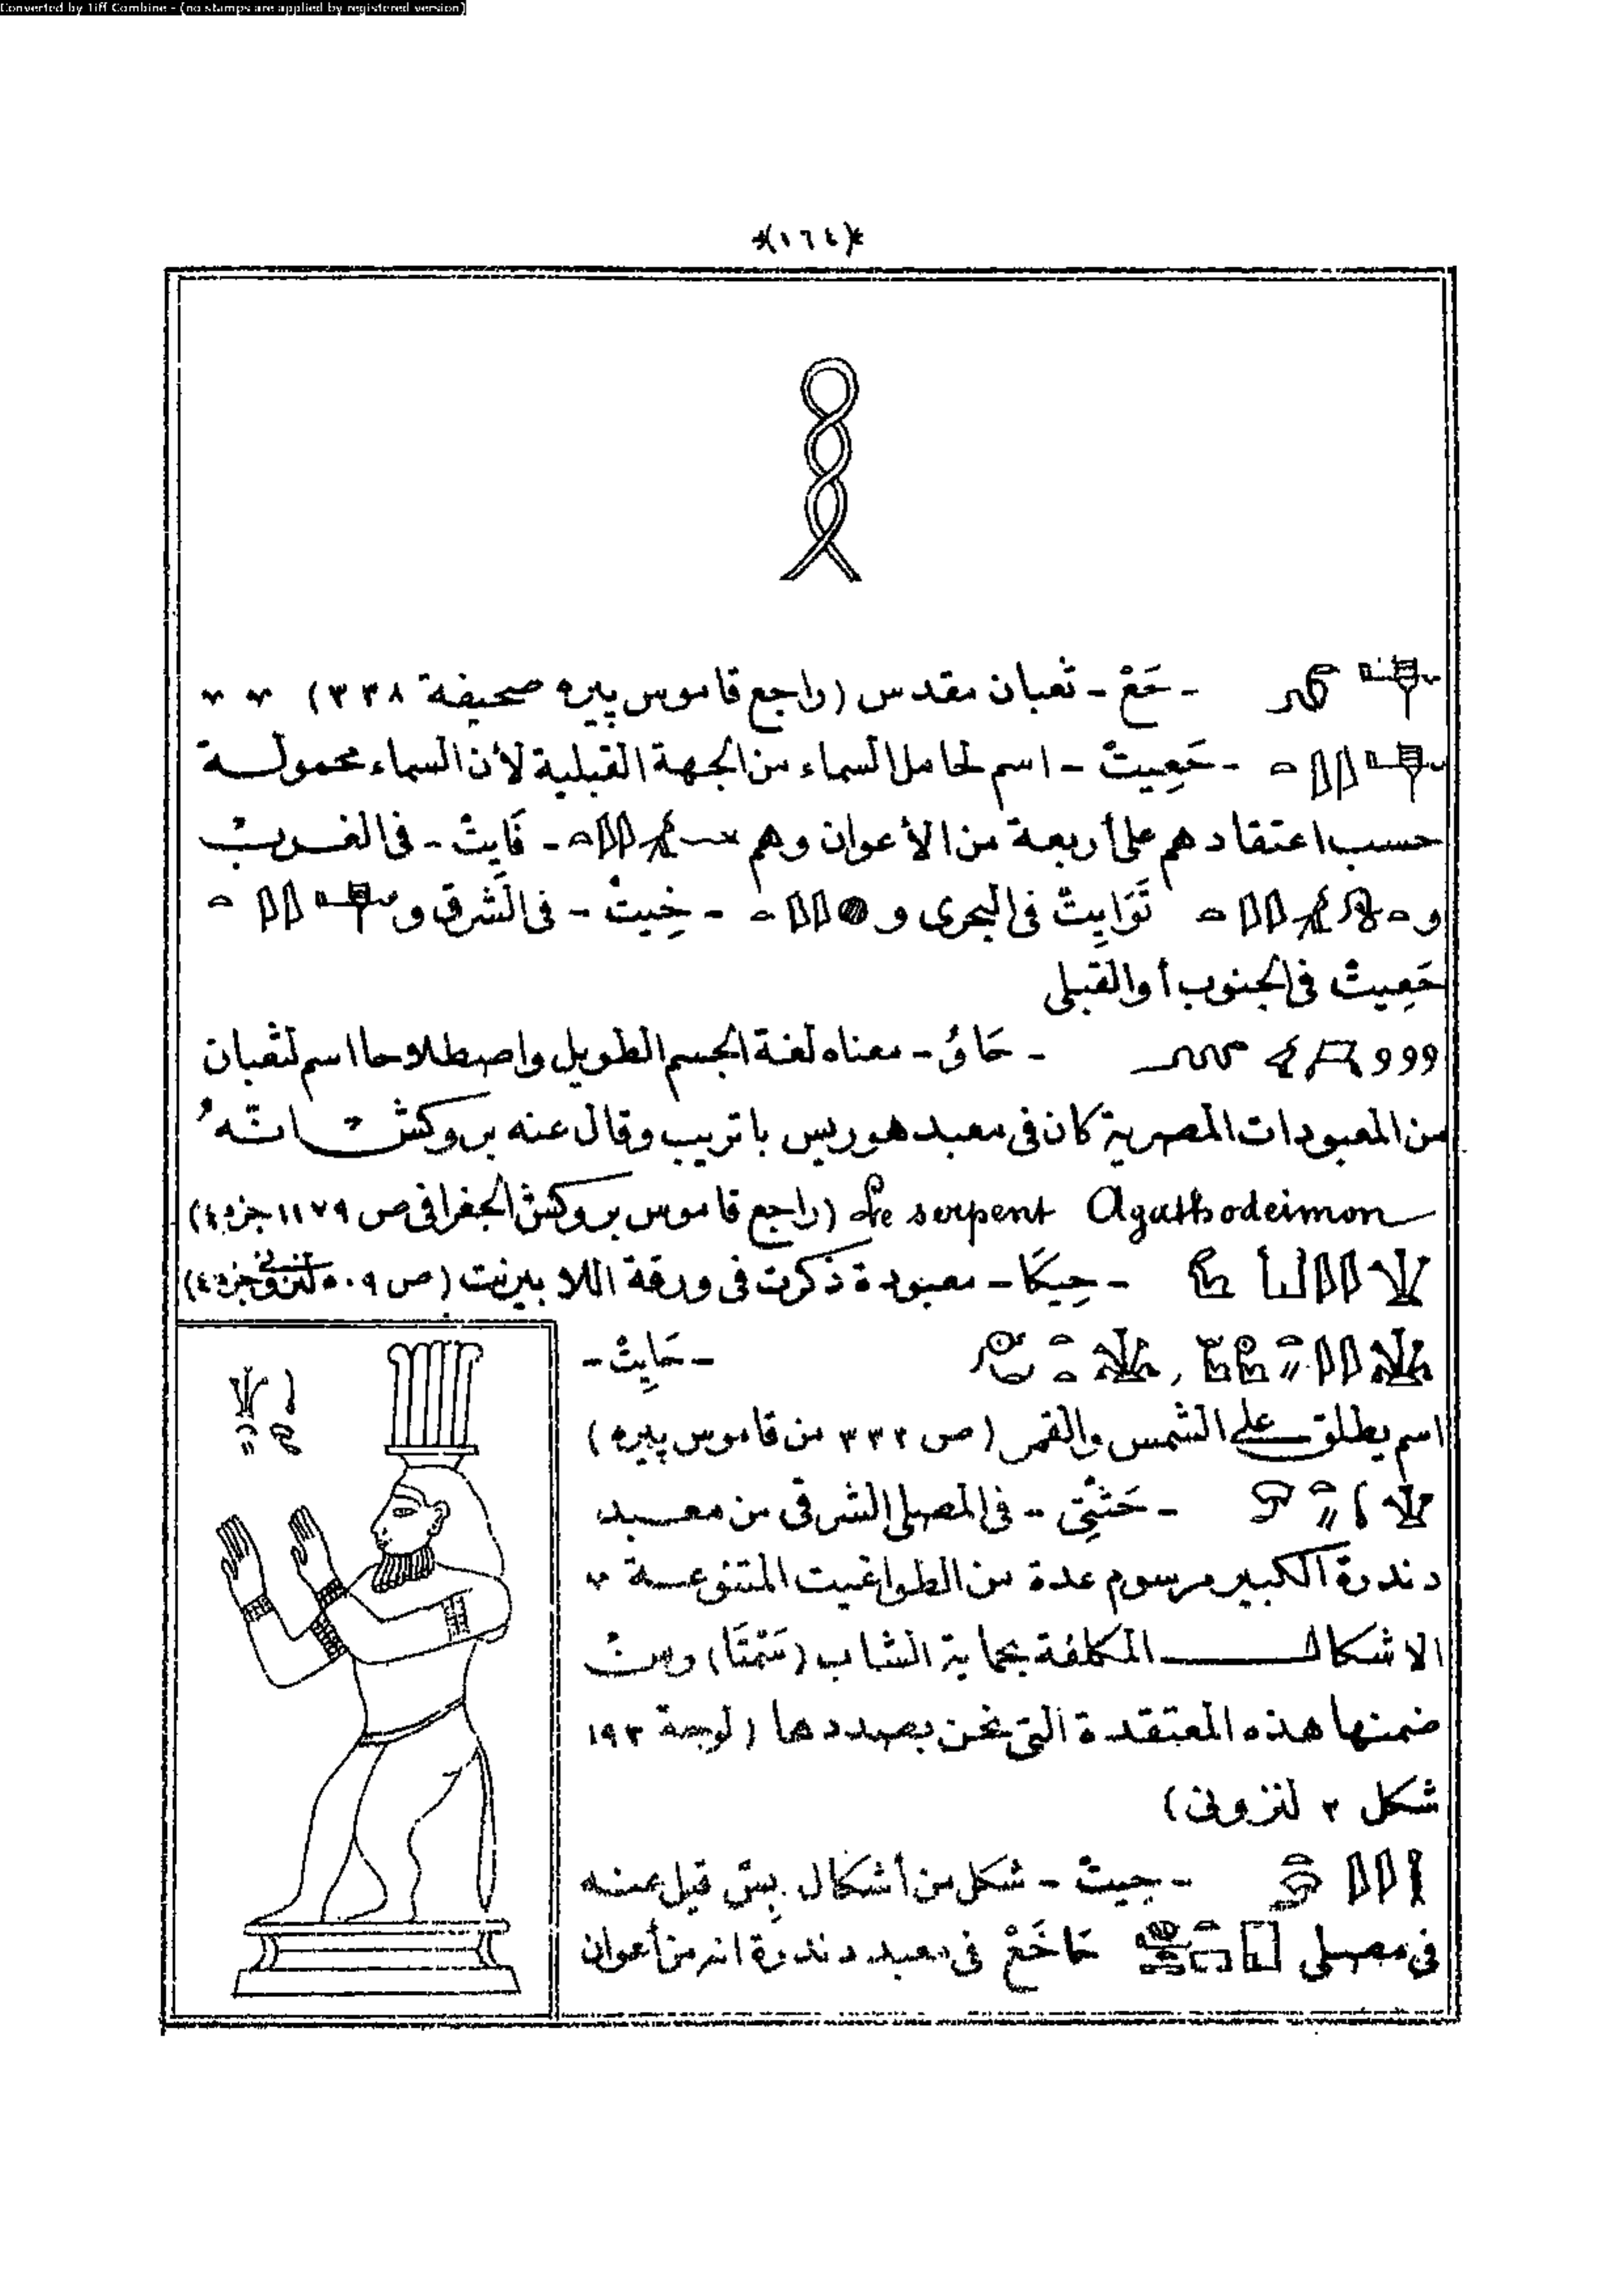 Converted by Tiff Combine - (no stamps are applied by registered version)
*(١٦٤)*
- حَعْ - ثعبان مقدس (راجع قاموس پيره صحيفة ٣٣٨)
- حَعِيتْ - اسم لحامل السماء من الجهة القبلية لأن السماء محمولة
حسب اعتقادهم على أربعة من الأعوان وهم - فَايِتْ - فى الغرب
و تَوَايِتْ فى البحرى و - خِيتْ - فى الشرق و
حَعِيتْ فى الجنوب أو القبلى
- حَاوُ - معناه لغة الجسم الطويل واصطلاحا اسم لثعبان
من المعبودات المصرية كان فى معبد هوريس باتريب وقال عنه بروكش انّه
Le serpent Agathodeimon (راجع قاموس بروكش الجغرافى ص ١١٧٩ جزء ٤)
- حِيكَا - معبودة ذكرت فى ورقة اللابيرنت (ص ٥٠٩ لنزونى جزء ٤)
- حَايِتْ -
اسم يطلق على الشمس والقمر (ص ٣٣٢ من قاموس پيره)
- حَتْتِى - فى المصلى الشرقى من معبد
دندرة الكبير مرسوم عدة من الطواغيت المتنوعة
الاشكال المكلفة بحماية الشاب ومن
ضمنها هذه المعتقدة التى نحن بصددها (لوحة ١٩٣
شكل ٢ لنزونى)
- حِيتْ - شكل من أشكال بِسْ قيل عنه
فى مصلى حَاخَعْ فى معبد دندرة انه من أعوان